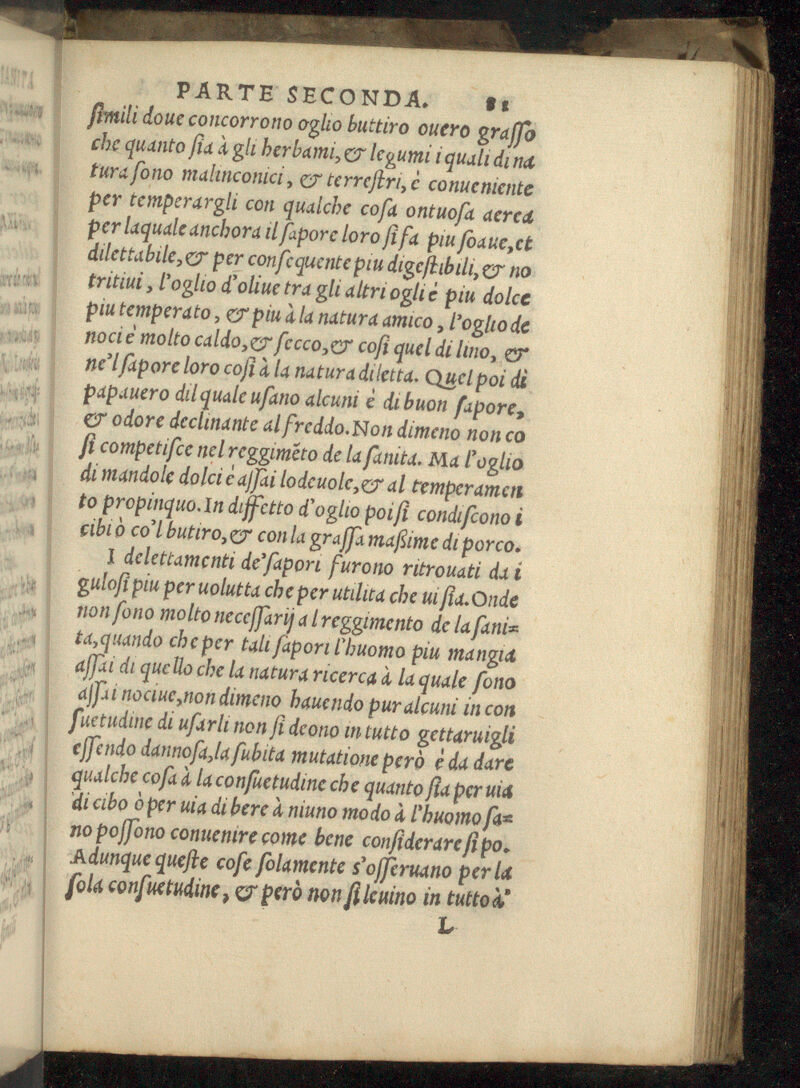 PARTE SECONDA. 81
ſimili doue concorrono oglio buttiro ouero graſſo
che quanto ſia à gli herbami, & legumi i quali di na
tura ſono malinconici, & terreſtri, è conueniente
per temperargli con qualche coſa ontuoſa aerea
per laquale anchora il ſapore loro ſi fa piu ſoaue, et
dilettabile, & per conſequente piu digeſtibili, & no
tritiui, l'oglio d'oliue tra gli altri ogli è piu dolce
piu temperato, & piu à la natura amico, l'oglio de
noci è molto caldo, & ſecco, & coſi quel di lino, &
ne'l ſapore loro coſi à la natura diletta. Quel poi di
papauero dil quale uſano alcuni è di buon ſapore,
& odore declinante al freddo. Non dimeno non co
ſi competiſce nel reggimēto de la ſanita. Ma l'oglio
di mandole dolci è aſſai lodeuole, & al temperamen
to propinquo. In diffetto d'oglio poi ſi condiſcono i
cibi ò co'l butiro, & con la graſſa maßime di porco.
I delettamenti de' ſapori furono ritrouati da i
guloſi piu per uolutta che per utilita che ui ſia. Onde
non ſono molto neceſſarij a l reggimento de la ſani=
ta, quando che per tali ſapori l'huomo piu mangia
aſſai di quello che la natura ricerca à la quale ſono
aſſai nociue, non dimeno hauendo pur alcuni in con
ſuetudine di uſarli non ſi deono in tutto gettar uigli
eſſendo dannoſa, la ſubita mutatione però è da dare
qualche coſa à la conſuetudine che quanto ſia per uia
di cibo ò per uia di bere à niuno modo à l'huomo ſa=
no poſſono conuenire come bene conſiderare ſi po.
Adunque queſte coſe ſolamente s'oſſeruano per la
ſola conſuetudine, & però non ſi leuino in tutto à'
L